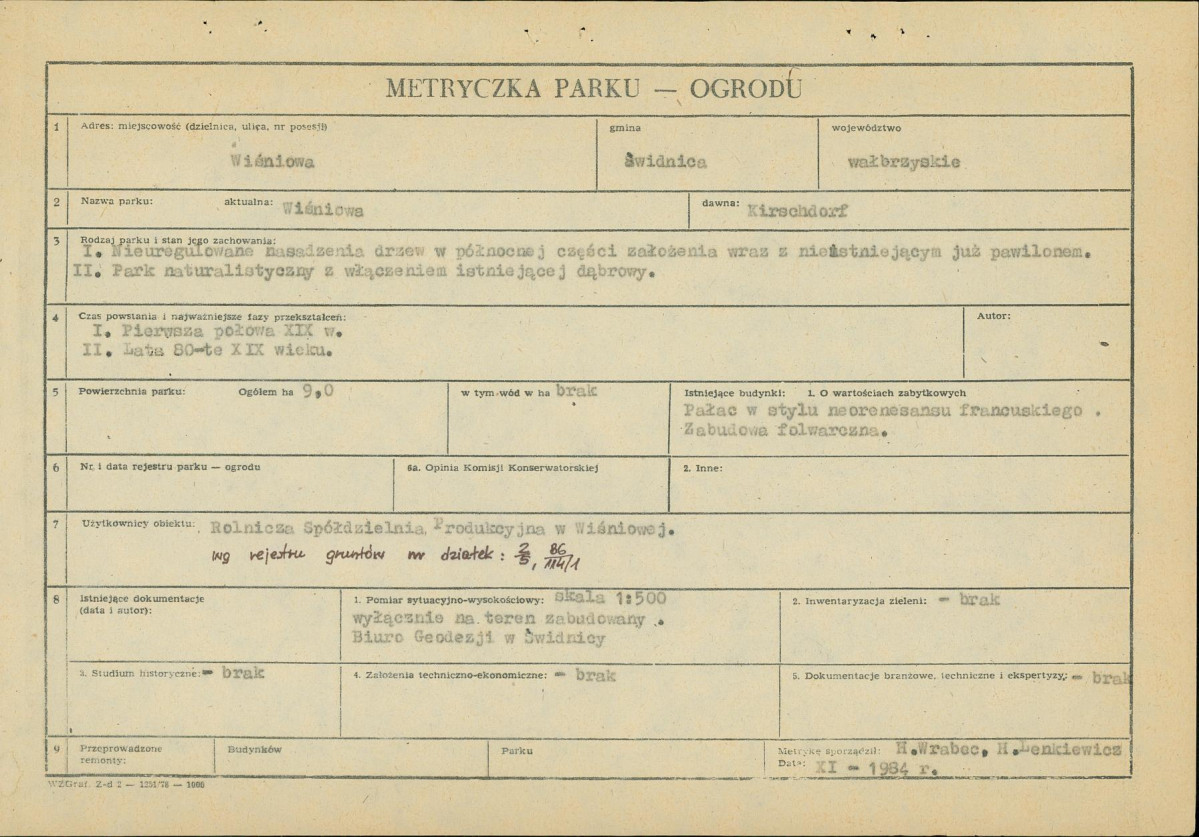 METRYCZKA PARKU — OGRODU
1 Adres: miejscowość (dzielnica, ulica, nr posesji) gmina województwo
Wiśniowa Świdnica wałbrzyskie
2 Nazwa parku: aktualna: Wiśniowa dawna: Kirschdorf
3 Rodzaj parku i stan jego zachowania:
I. Nieuregulowane nasadzenia drzew w północnej części założenia wraz z nieistniejącym już pawilonem.
II. Park naturalistyczny z włączeniem istniejącej dąbrowy.
4 Czas powstania i najważniejsze fazy przekształceń: Autor:
I. Pierwsza połowa XIX w.
II. Lata 80-te XIX wieku.
5 Powierzchnia parku: Ogółem ha 9,0 w tym wód w ha brak Istniejące budynki: 1. O wartościach zabytkowych
Pałac w stylu neorenesansu francuskiego .
Zabudowa folwarczna.
6 Nr i data rejestru parku — ogrodu 6a. Opinia Komisji Konserwatorskiej 2. Inne:
7 Użytkownicy obiektu: Rolnicza Spółdzielnia Produkcyjna w Wiśniowej.
wg rejestru gruntów nr działek : 2/5, 86/114/1
8 Istniejące dokumentacje (data i autor): 1. Pomiar sytuacyjno-wysokościowy: skala 1:500 2. Inwentaryzacja zieleni: - brak
wyłącznie na teren zabudowany .
Biuro Geodezji w Świdnicy
3. Studium historyczne: - brak 4. Założenia techniczno-ekonomiczne: - brak 5. Dokumentacje branżowe, techniczne i ekspertyzy: - brak
9 Przeprowadzone remonty: Budynków Parku Metrykę sporządził: H.Wrabec, H.Lenkiewicz
Data: XI - 1984 r.
WZGraf. Z-d 2 — 1251/78 — 1000